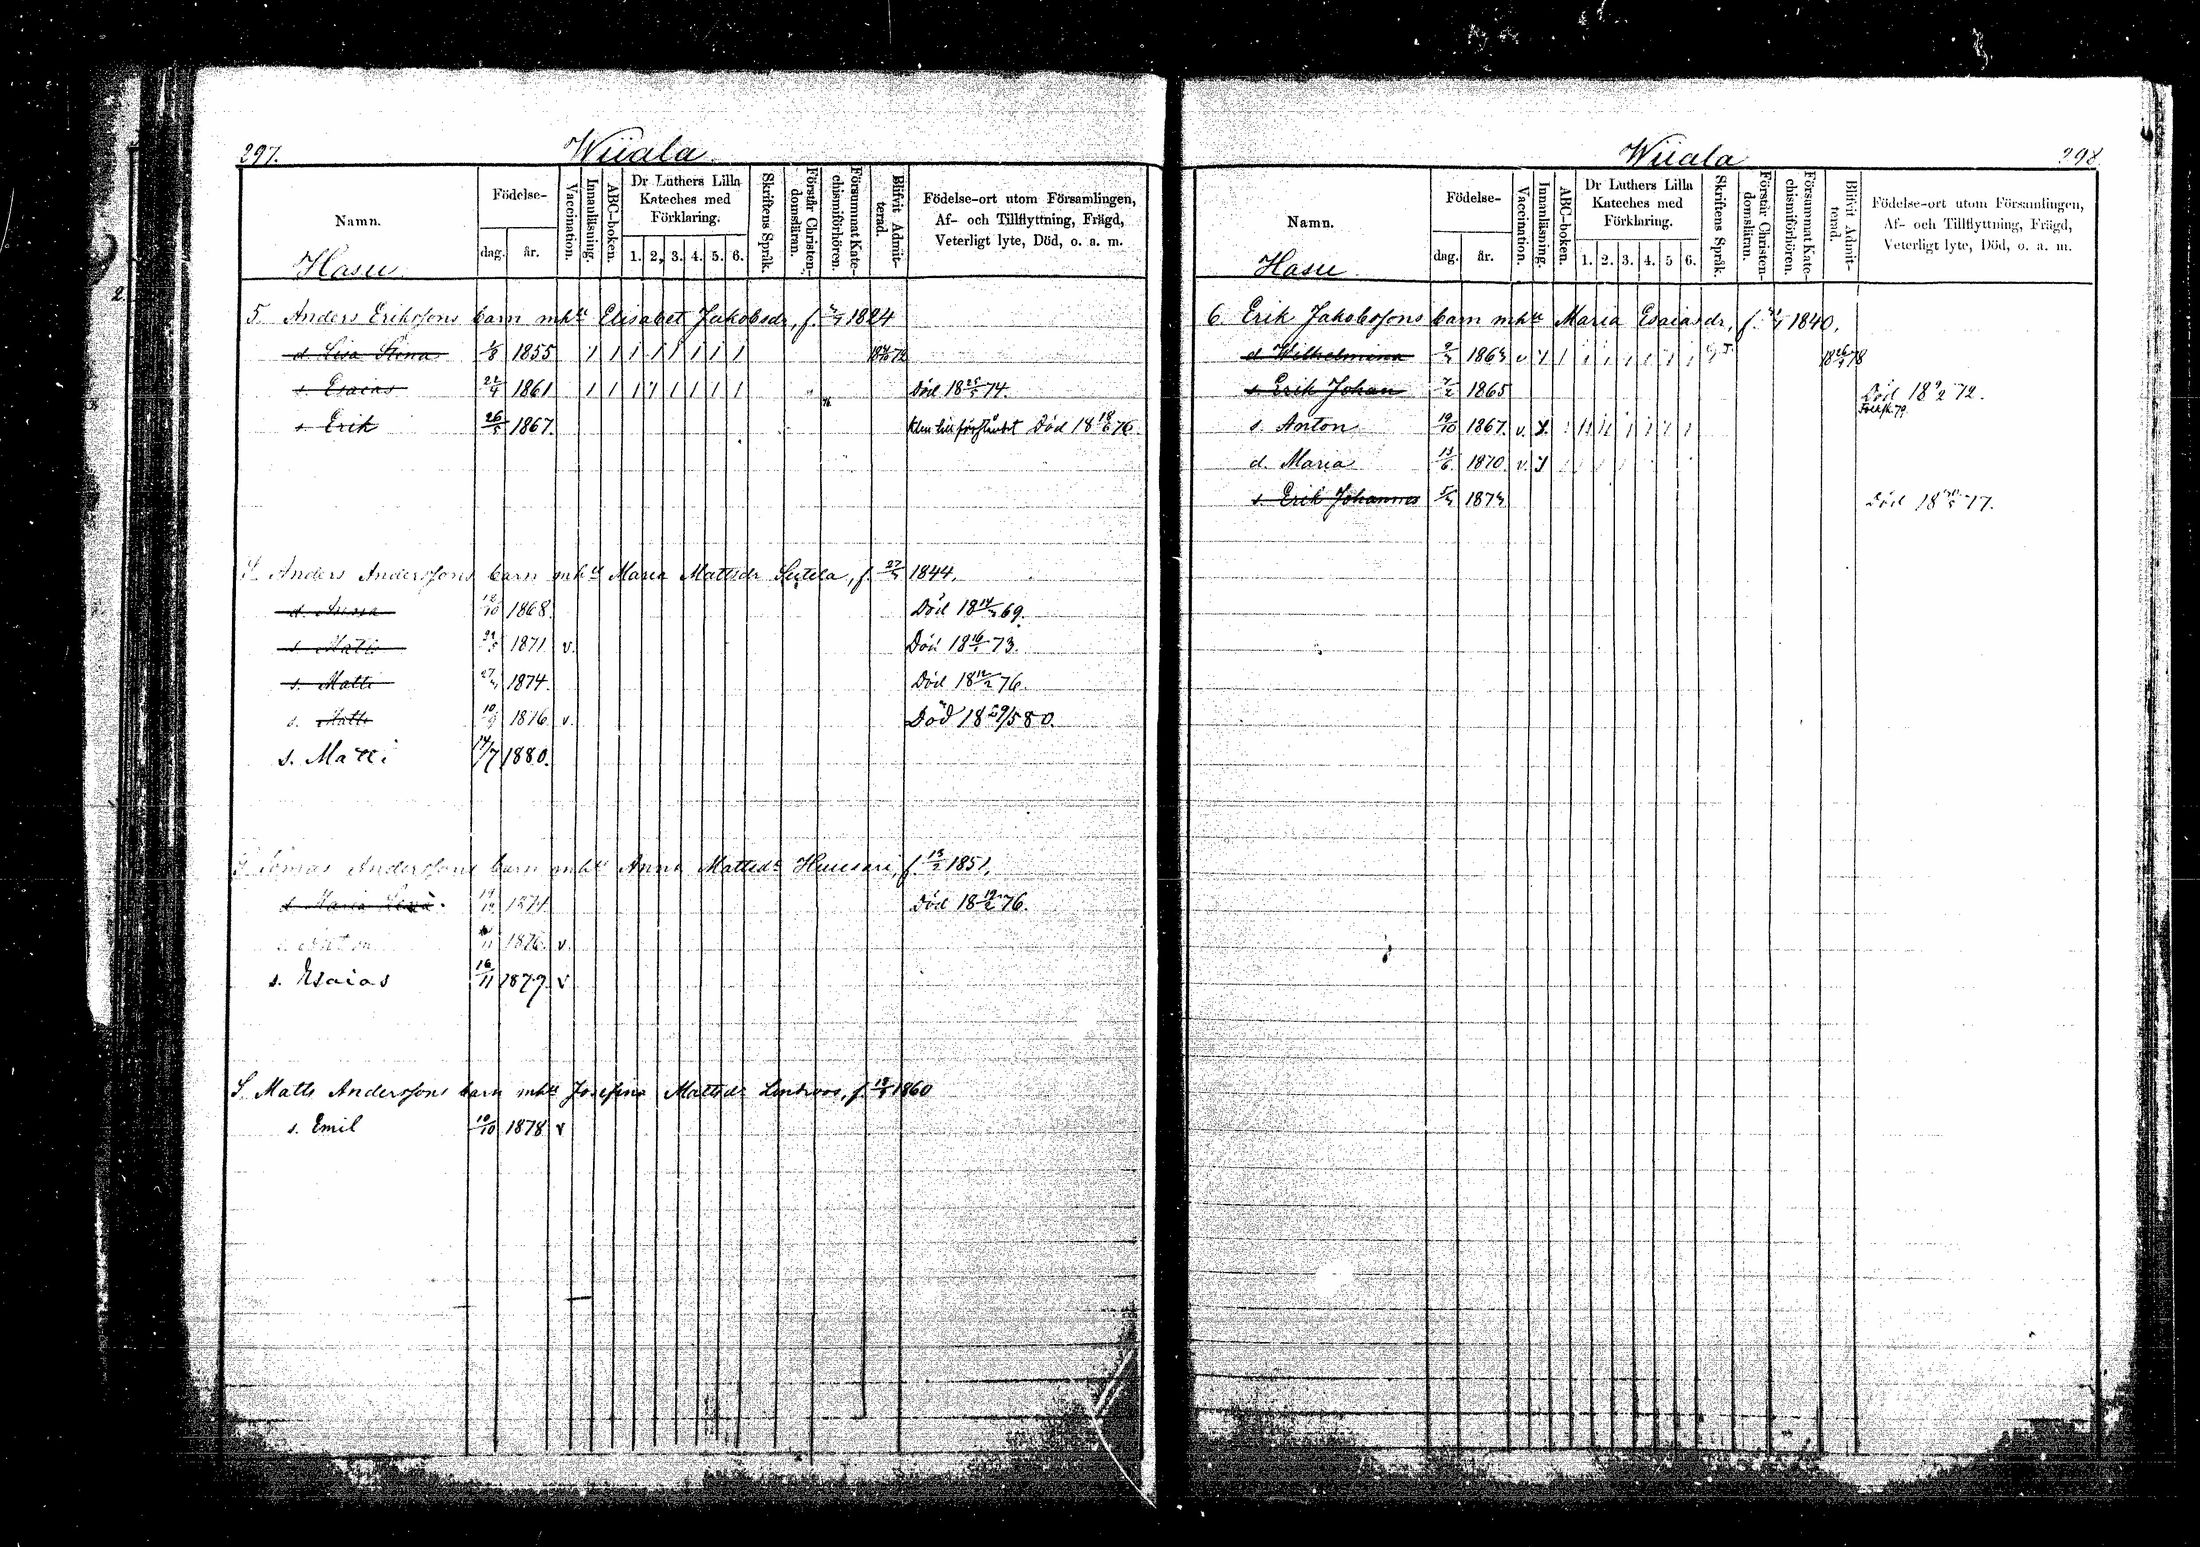 297.
Wiiala
Namn.
Hasu
Födelse-
dag.
år.
Vaccination.
Innanläsning.
ABC-boken.
Dr Luthers Lilla
Kateches med
Förklaring.
1. 2. 3. 4. 5. 6.
Skriftens Språk.
Förstår Christen-
domsläran.
Försummat Kate-
chismiförhören.
Blifvit Admit-
terad.
Födelse-ort utom Församlingen,
Af- och Tillflyttning, Frägd,
Veterligt lyte, Död, o. a. m.
5. Anders Erikssons barn mhtt Elisabet Jakobsdr, f. 1824
d Lisa Stena 1855 1 1 1 1 1 1 1 1
s. Esaias 22/4 1861 1 1 1 1 1 1 1 1 Död 18 74.
s Erik 26/5 1867. Klen till förståndet Död 18 18/6 76
S. Anders Anderssons barn mhtt Maria Mattsdr Seitela, f. 1844.
d. 1868. Död 18 69.
s. Matts 1871 v. Död 18 73.
s. Matti 1874. Död 18 12/2 76.
s. Matti 10/9 1876 v. Död 18 29/5 80.
s. Matti 14/7 1880.
S. Tomas Anderssons barn mhtt Anna Mattsdr f. 13/2 1851.
d Maria 1871. Död 18 19/2 76.
s. Anton 1876 v.
s. Esaias 16/11 1879 v
S. Matts Anderssons barn mhtt Josefina Mattsdr Lindroos, f. 1860
s. Emil 10/10 1878 v
Wiiala
298.
Namn.
Hasu
Födelse-
dag.
år.
Vaccination.
Innanläsning.
ABC-boken.
Dr Luthers Lilla
Kateches med
Förklaring.
1. 2. 3. 4. 5 6.
Skriftens Språk.
Förstår Christen-
domsläran.
Försummat Kate-
chismiförhören.
Blifvit Admit-
terad.
Födelse-ort utom Församlingen,
Af- och Tillflyttning, Frägd,
Veterligt lyte, Död, o. a. m.
6. Erik Jakobssons barn mhtt Maria Esaiasdr, f. 1840.
d Wilhelmina 1863 v 78
s. Erik Johan 7/2 1865 Död 18 9/2 72.
s. Anton 19/10 1867. v.
d. Maria 13/6 1870 v.
s. Erik Johannes 1873 Död 18 77.